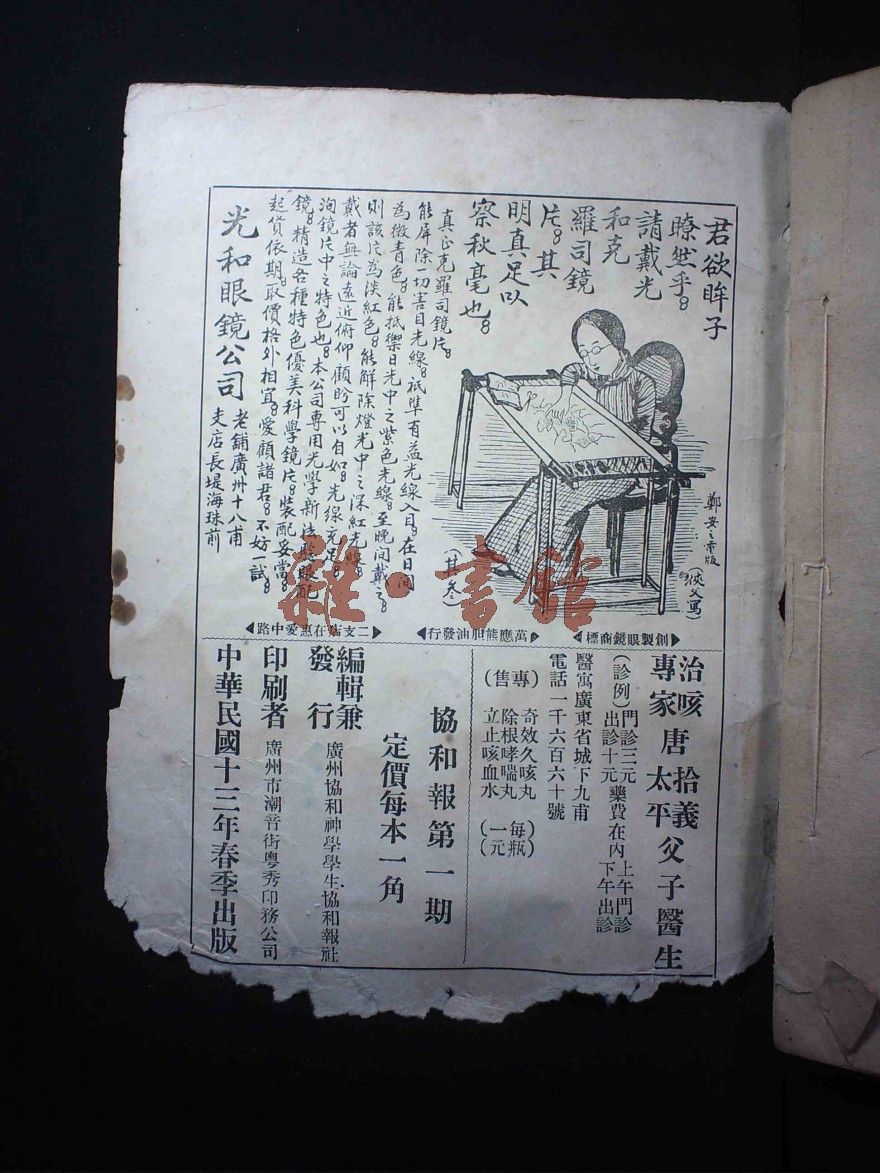 君欲眸子
瞭然乎。
請戴光
和克
羅司鏡
片。其
明真足以
察秋毫也。
真正克羅司鏡片。
能屏除一切害目光線。祇準有益光線入目。在日間
為微青色。能抵禦日光中之紫色光線。至晚間戴之。
則該片為淡紅色。能解除燈光中之深紅光線。
戴者無論遠近俯仰顧盼可以自如。光線充足。
洵鏡片中之特色也。本公司專用光學新法驗眼配
鏡。精造各種特色優美科學鏡片。裝配妥當。
起貨依期。取價格外相宜。愛顧諸君。不妨一試。
光和眼鏡公司
老舖廣州十八甫
支店長堤海珠前
鄭安之電版
(俠父寫)
(其叁)
創製眼鏡商標
萬應熊胆油發行
二支店在惠愛中路
治咳
專家
唐拾義
太平
父子醫生
(診例)
門診三元
出診十元
藥費在內
上午門診
下午出診
醫寓廣東省城下九甫
電話一千六百六十號
(專售)
奇效久咳丸
除根哮喘丸
立止咳血水
(每瓶一元)
協和報第一期
定價每本一角
編輯兼
發行
廣州協和神學學生協和報社
印刷者
廣州市潮音街粵秀印務公司
中華民國十三年春季出版
雜·書館